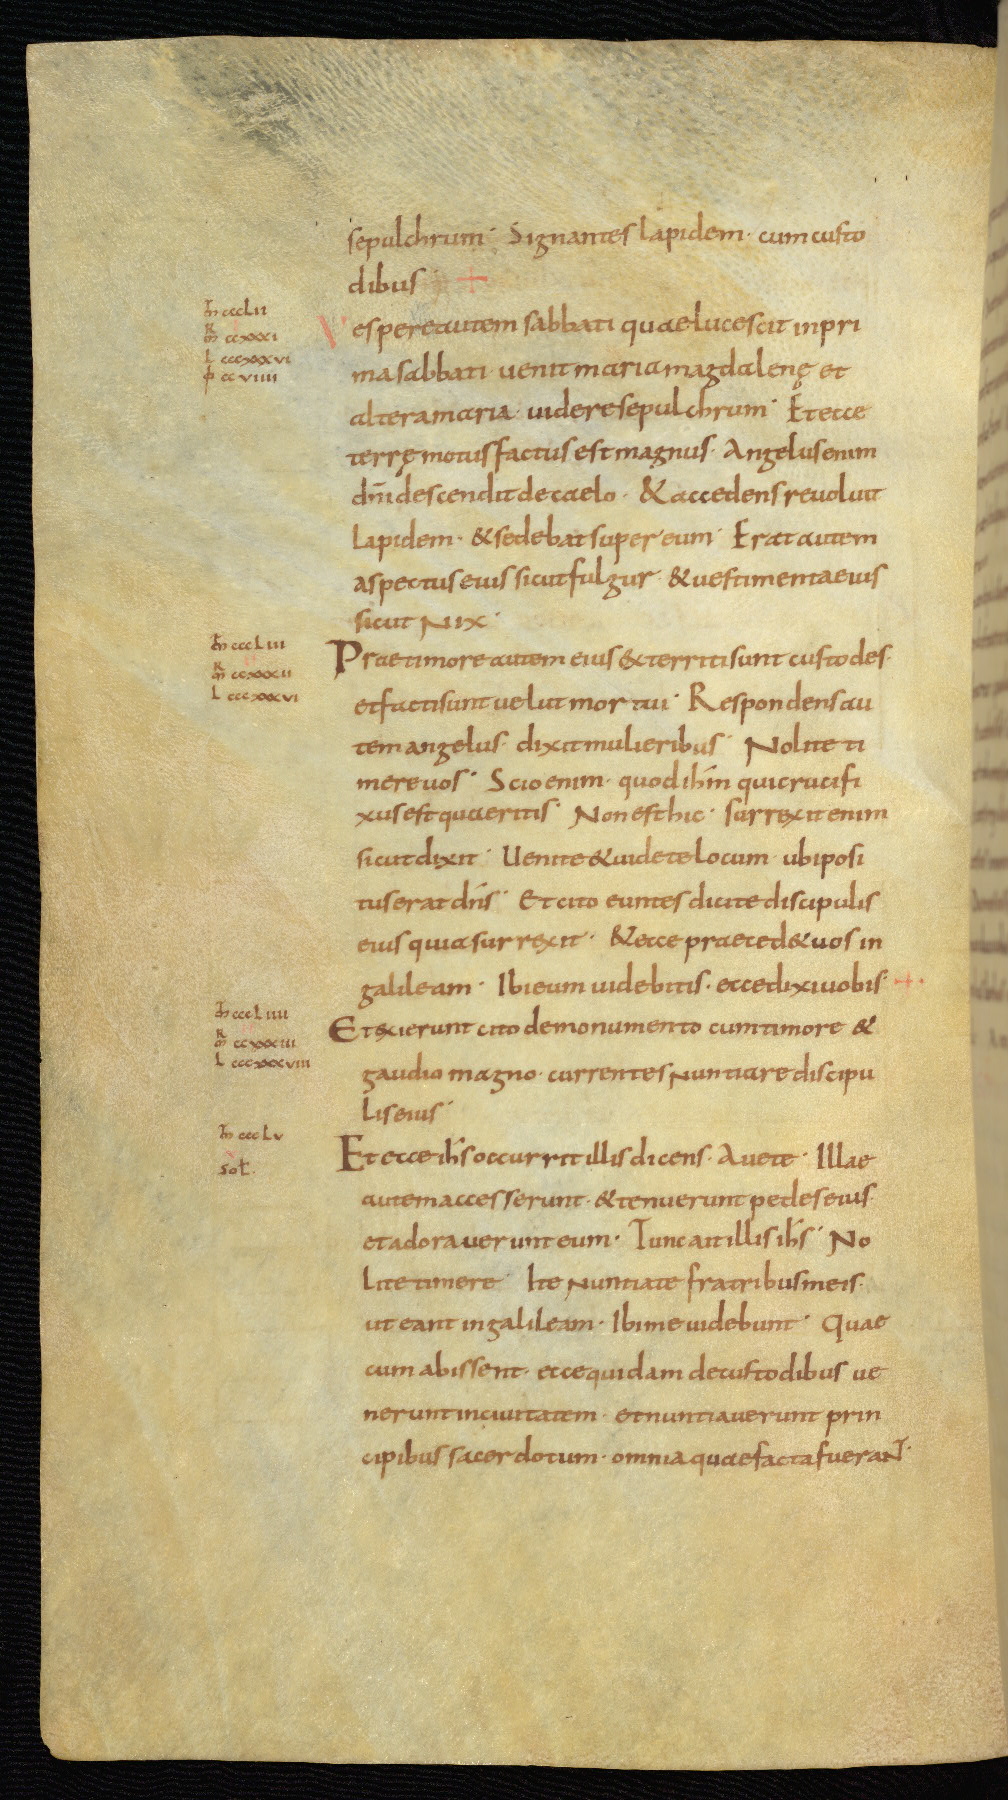 sepulchrum· Signantes lapidem· cum custo
dibus· +
m̄ cccLII
Vespere autem sabbati quae lucescit in pri
mr̄ ccxxxi
L cccxxxvi
ma sabbati· uenit maria magdalenę et
ɸ ccviiii
altera maria· uidere sepulchrum· Et ecce
terrę motus factus est magnus· Angelus enim
dn̄i descendit de caelo· & accedens reuoluit
lapidem· & sedebat super eum· Erat autem
aspectus eius sicut fulgur· & uestimenta eius
sicut Nix·
m̄ cccLIII
Prae timore autem eius &territi sunt custodes·
mr̄ ccxxxii
L cccxxxvi
et facti sunt uelut mortui· Respondens au
tem angelus· dixit mulieribus· Nolite ti
mere uos· Scio enim· quod ihm̄ qui crucifi
xus est quaeritis· Non est hic· surrexit enim
sicut dixit· Uenite & uidete locum· ubi posi
tus erat dn̄s· Et cito euntes dicite discipulis
eius quia surrexit· & ecce praeced& uos in
galileam· Ibi eum uidebitis· ecce dixi uobis· +·
m̄ cccLIIII
Et exierunt cito de monumento cum timore &
mr̄ ccxxxiii
L cccxxxviii
gaudio magno· currentes Nuntiare discipu
lis eius·
m̄ cccLv
Et ecce ihs̄ occurrit illis dicens· Auete· Illae
sol̄·
autem accesserunt· & tenuerunt pedes eius·
et adorauerunt eum· Tunc ait illis ihs̄· No
lite timere· Ite Nuntiate fratribus meis·
ut eant in galileam· Ibi me uidebunt· Quae
cum abissent· ecce quidam de custodibus ue
nerunt in ciuitatem· et nuntiauerunt prin
cipibus sacerdotum· omnia quae facta fuerant·